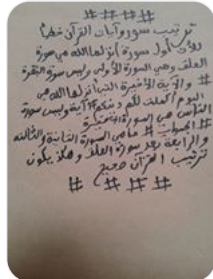 # # # #
ترتيب سور وآيات القرآن خطأ
للأن أول سورة أنزلها الله هي سورة
العلق وهي السورة الأولى وليس سورة البقرة
# والآية الأخيرة التي أنزلها الله هي
اليوم أكملت لكم دينكم # آية وليس سورة
الناس هي السورة الأخيرة
# ما هي السورة الثانية والثالثة
والرابعة بعد سورة العلق وهكذا يكون
ترتيب القرآن صحيح
# # # #